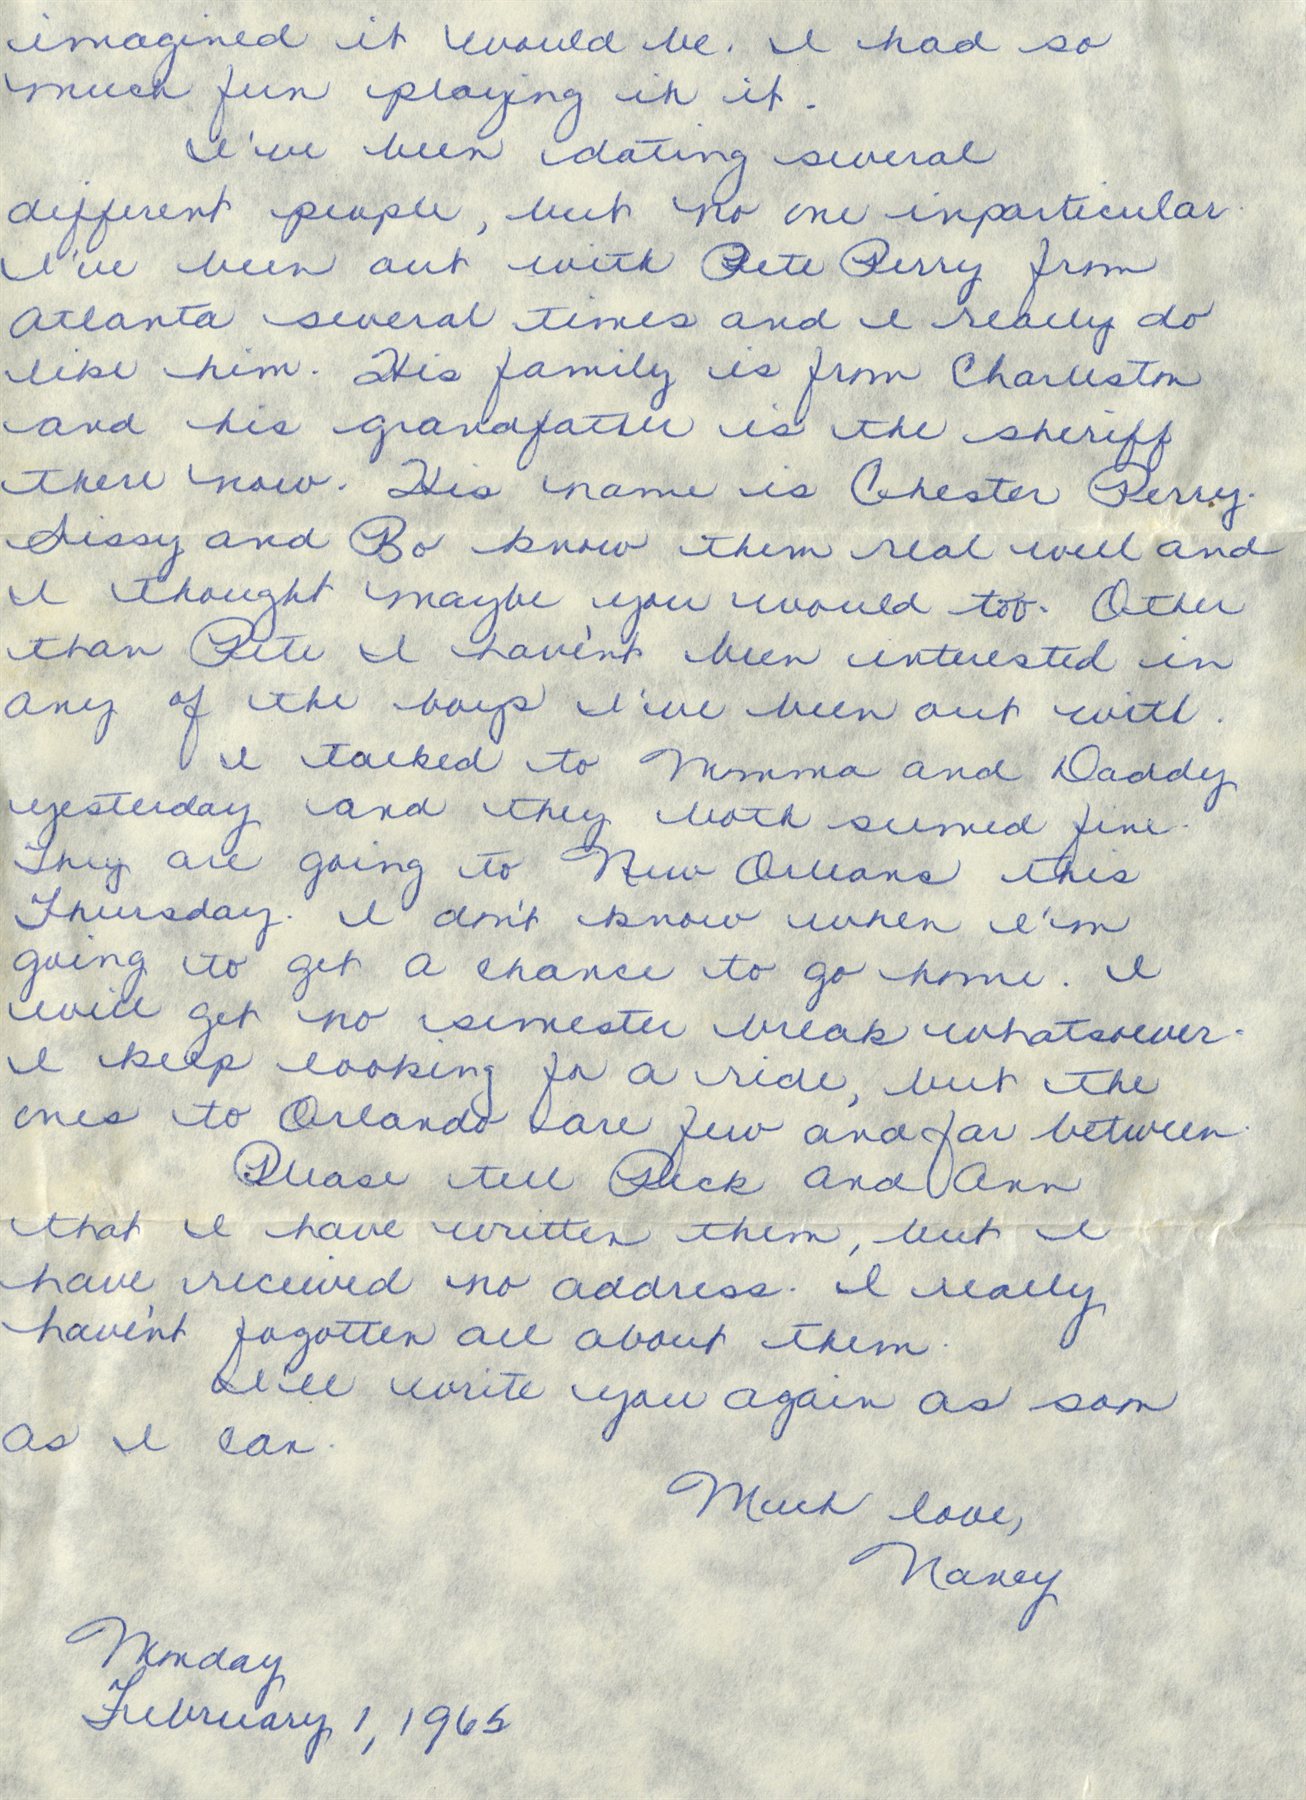 imagined it would be. I had so
much fun playing in it.
I've been dating several
different people, but no one inparticular.
I've been out with Pete Perry from
Atlanta several times and I really do
like him. His family is from Charleston
and his grandfather is the sheriff
there now. His name is Chester Perry.
Sissy and Bo know them real well and
I thought maybe you would too. Other
than Pete I haven't been interested in
any of the boys I've been out with.
I talked to Momma and Daddy
yesterday and they both seemed fine.
They are going to New Orleans this
Thursday. I don't know when I'm
going to get a chance to go home. I
will get no semester break whatsoever.
I keep looking for a ride, but the
ones to Orlando are few and far between.
Please tell Peck and Ann
that I have written them, but I
have received no address. I really
haven't fogotten all about them.
I'll write you again as soon
as I can.
Much love,
Nancy
Monday
February 1, 1965